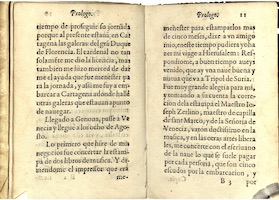 Prologo.
tiempo de proseguir su jornada
porque al presente estauã en Car
tagena las galeras del grã Duque
de Florencia. El cardenal no tan
solamẽte me dio la licencia, mas
tambien me hizo merced de dar
me el ayuda que fue menester pa
ra la jornada, y assi me fuy a em
barcar a Cartagena adonde halle
otras galeras que estauan apunto
de nauegar.
Llegado a Genoua, passe a Ve
necia y llegue a los ocho de Ago
sto.
Lo primero que hize de mis
negocios fue concertar la estam
pa de dos libros de musica. Y di
ziendome el impressor que era
me-
Prologo. 11
menester para estamparlos mas
de cinco meses, dixe a vn amigo
mio, en este tiempo pudiera yo ha
zer mi viage a Hierusalem: Res
pondiome, a buen tiempo aueys
venido, que ay vna naue buena y
nueua que va a Tripol de Suria:
Fue muy grande alegria para mi,
y tomando a cargo de la corretiõ
de la estampa el Maestro Io
seph Zerlino, maestro de capilla
de sant Marco, y de la Señoria de
Venecia, varon doctissimo en la
musica, y en las otras artes libera
les, me concerte con el escriuano
de la naue lo que se suele pagar
por cada persona, que son cinco
escudos por la embarcacion, y
B 3 por